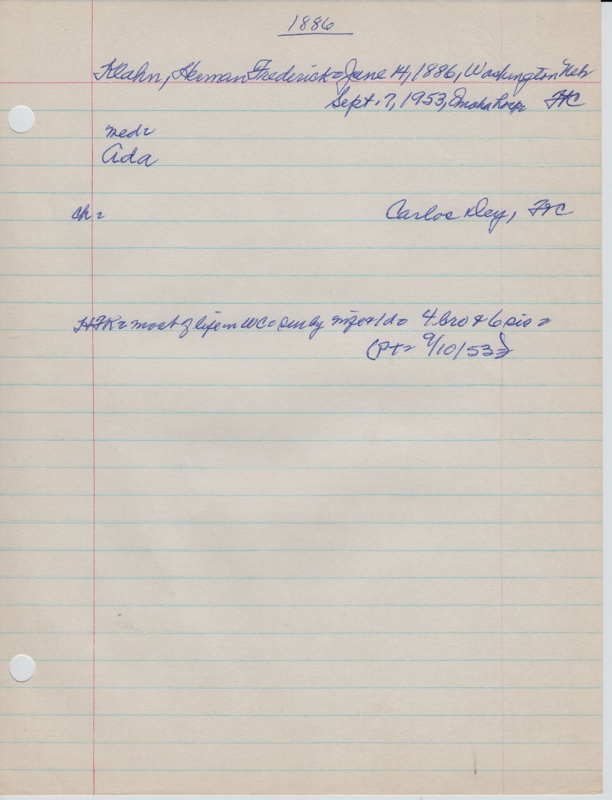 1886
Klahn, Herman Frederick = June 14, 1886, Washington Neb
Sept. 7, 1953, Omaha hosp FC
med =
Ada
ch = Carlos Dey, FC
HFK = most of life in WC = sur by wife & 1 da 4 bro & 6 sis =
(PT = 9/10/53)